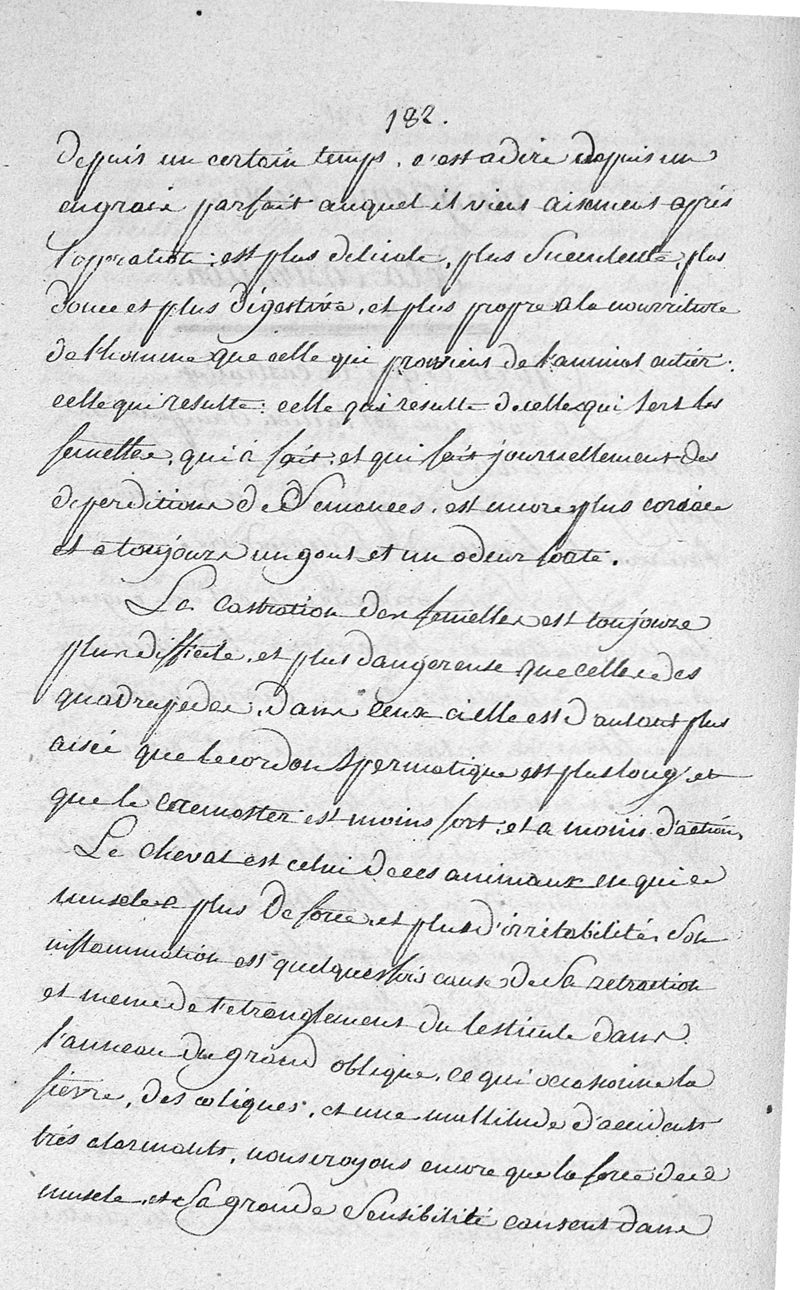 182.
depuis un certain temps, c'est adire depuis un
engrais parfait auquel il vient aisement après
l'operation; est plus delicate, plus succulente, plus
douce et plus digestive, et plus propre a la nourriture
de l'homme que celle qui provient de l'animal entier;
celle qui resulte: celle qui resulte de celles qui sert les
femelles, qui a fait, et qui fait journellement des
deperditions de Semences, est encore plus coriace
et a toujours un gout et un odeur forte.
La Castration des femelles est toujours
plus difficile, et plus dangereuse que celle des
quadrupedes, dans ceux ci elle est d'autant plus
aisée que le cordon Spermatique est plus long et
que le Cremaster est moins fort, et a moins d'action,
Le cheval est celui de ces animaux en qui ce
muscle a plus de force, et plus d'irritabilité, Son
inflammation est quelques fois cause de Sa retraction
et meme de l'etranglement du testicule dans
l'anneau du grand oblique, ce qui occasionne la
fievre, des coliques, et une multitude d'accidents
très alarmants, nous croyons encore que la force de ce
muscle, et Sa grande Sensibilité causent dans